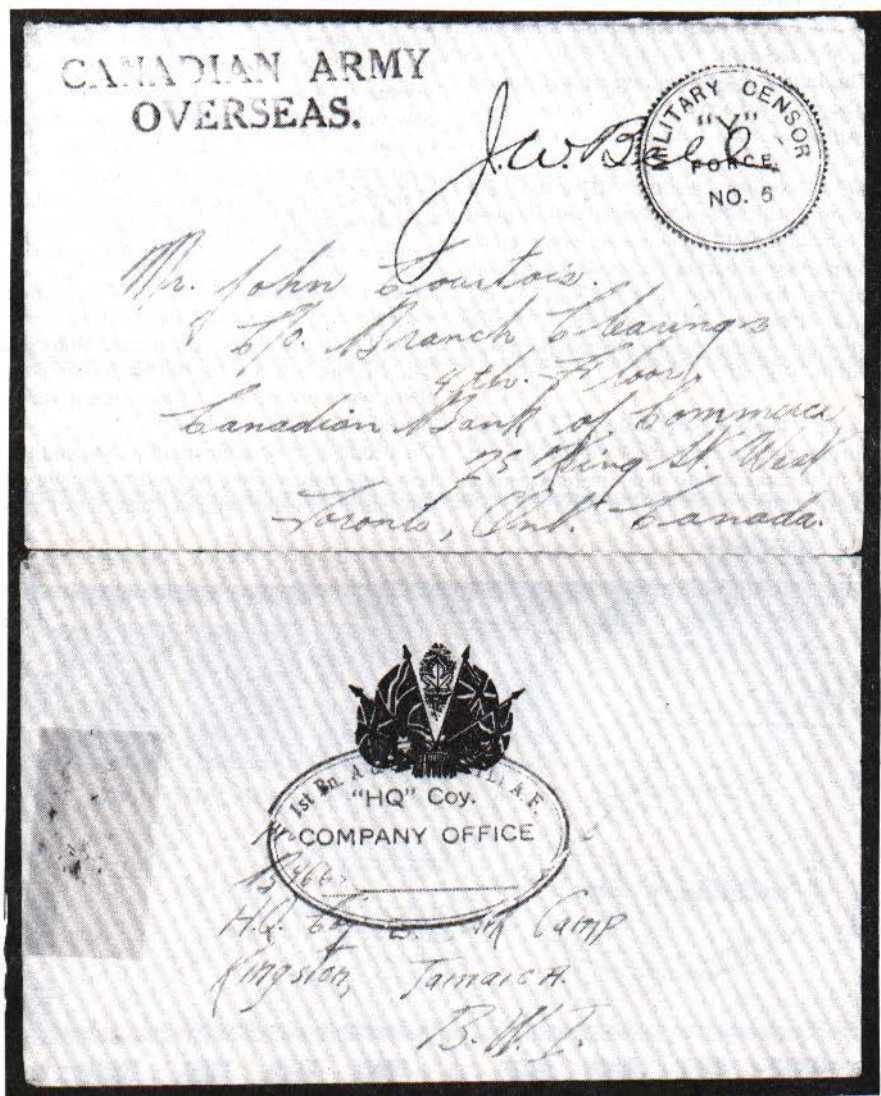 CANADIAN ARMY
OVERSEAS.
J. W. Bell
MILITARY CENSOR
"Y"
FORCE
NO. 6
Mr. John Courtois.
C/o. Branch Clearings
4th. Floor,
Canadian Bank of Commerce,
25 King St. West
Toronto, Ont. Canada.
1st Bn. A
A.F.
"HQ" Coy.
COMPANY OFFICE
H.Q. Coy Camp
Kingston, Jamaica.
B.W.I.